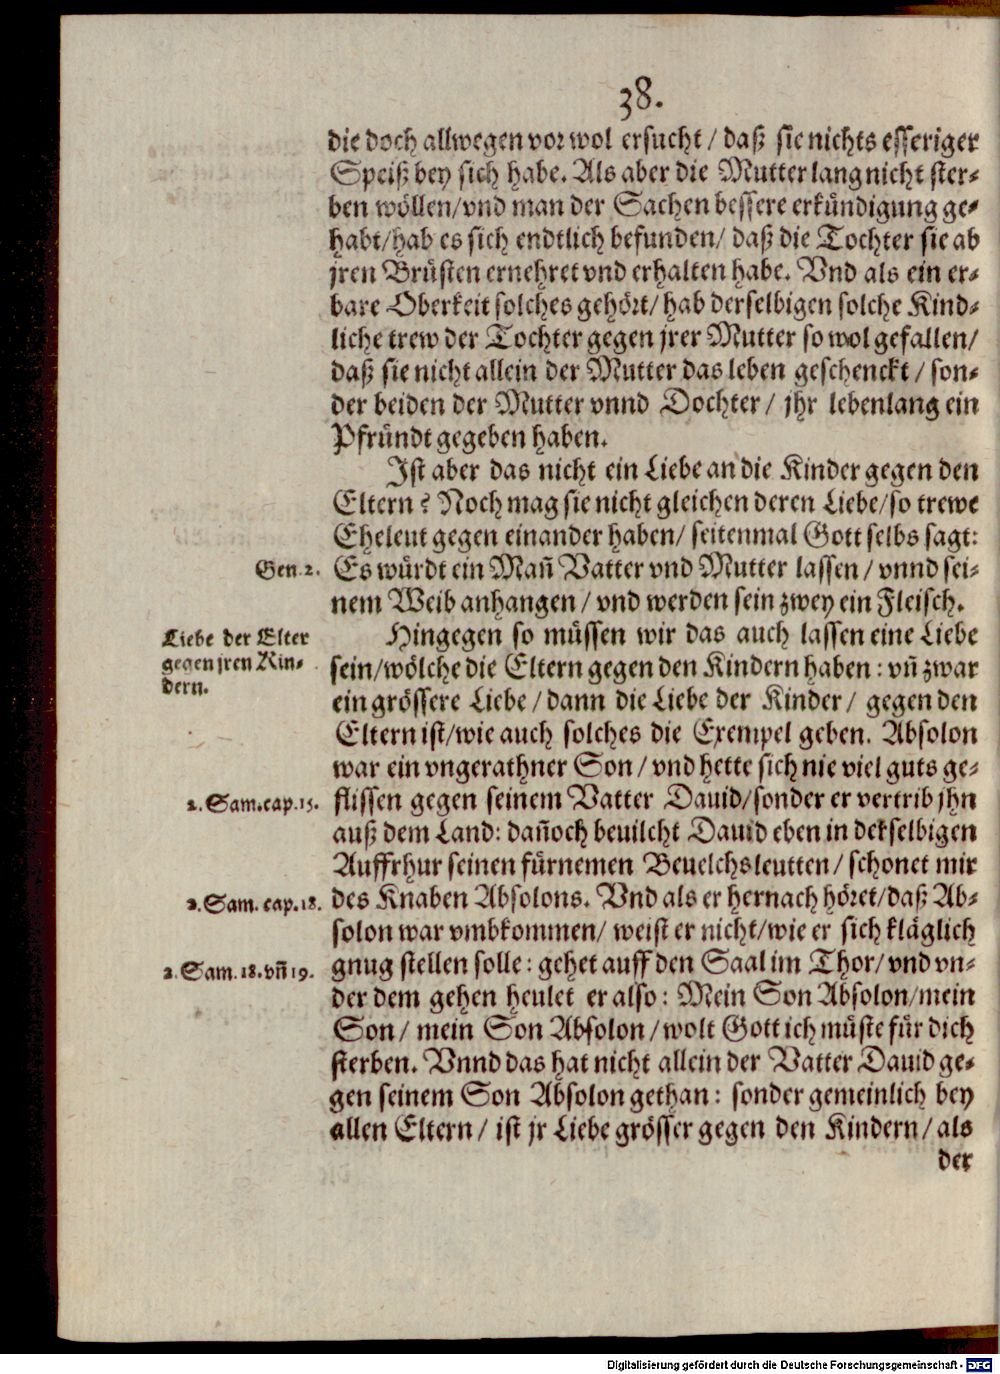 38.
die doch allwegen vor wol ersucht / daß sie nichts esseriger
Speiß bey sich habe. Als aber die Mutter lang nicht ster-
ben wöllen/vnd man der Sachen bessere erkündigung ge-
habt/hab es sich endtlich befunden/ daß die Tochter sie ab
jren Brüsten ernehret vnd erhalten habe. Vnd als ein er-
bare Oberkeit solches gehört/hab derselbigen solche Kind-
liche trew der Tochter gegen jrer Mutter so wol gefallen/
daß sie nicht allein der Mutter das leben geschenckt / son-
der beiden der Mutter vnnd Dochter / jhr lebenlang ein
Pfründt gegeben haben.
Ist aber das nicht ein Liebe an die Kinder gegen den
Eltern? Noch mag sie nicht gleichen deren Liebe/so trewe
Eheleut gegen einander haben/ seitenmal Gott selbs sagt:
Gen. 2. Es würdt ein Mañ Vatter vnd Mutter lassen / vnnd sei-
nem Weib anhangen / vnd werden sein zwey ein Fleisch.
Liebe der Elter
gegen jren Kin-
dern.
Hingegen so müssen wir das auch lassen eine Liebe
sein/wölche die Eltern gegen den Kindern haben: vñ zwar
ein grössere Liebe / dann die Liebe der Kinder / gegen den
Eltern ist/wie auch solches die Exempel geben. Absolon
war ein vngerathner Son / vnd hette sich nie viel guts ge-
2. Sam. cap. 15. flissen gegen seinem Vatter Dauid/sonder er vertrib jhn
auß dem Land: dañoch beuilcht Dauid eben in derselbigen
Auffrhur seinen fürnemen Beuelchsleutten / schonet mir
2. Sam. cap. 18. des Knaben Absolons. Vnd als er hernach höret/daß Ab-
solon war vmbkommen/ weist er nicht/wie er sich kläglich
2. Sam. 18. vñ 19. gnug stellen solle: gehet auff den Saal im Thor/ vnd vn-
der dem gehen heulet er also: Mein Son Absolon/mein
Son / mein Son Absolon / wolt Gott ich müste für dich
sterben. Vnnd das hat nicht allein der Vatter Dauid ge-
gen seinem Son Absolon gethan: sonder gemeinlich bey
allen Eltern / ist jr Liebe grösser gegen den Kindern / als
der
Digitalisierung gefördert durch die Deutsche Forschungsgemeinschaft - DFG